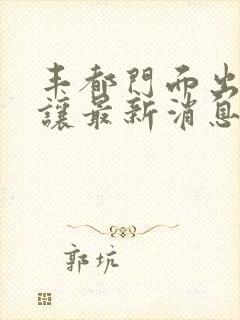 丰都門而出
讓最新消息
郭坑